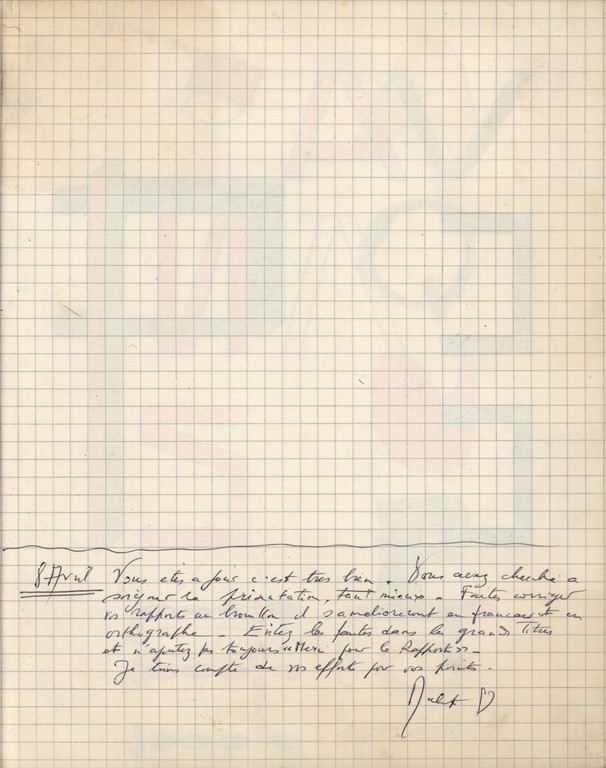 8 Avril Vous êtes à jour c'est très bien. Vous avez cherché à
soigner la présentation, tant mieux. Faites corriger
vos rapports au brouillon, ils s'amélioreront en français et en
orthographe. Evitez les fautes dans les grands Titres
et n'ajoutez pas toujours "Merci pour le Rapport".
Je tiens compte de vos efforts pour vos points.